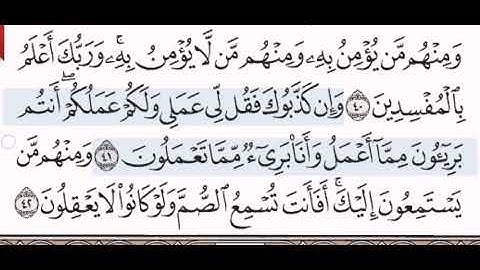 وَمِنْهُم مَّن يُؤْمِنُ بِهِۦ وَمِنْهُم مَّن لَّا يُؤْمِنُ بِهِۦۚ وَرَبُّكَ أَعْلَمُ
بِٱلْمُفْسِدِينَ ٤٠ وَإِن كَذَّبُوكَ فَقُل لِّى عَمَلِى وَلَكُمْ عَمَلُكُمْۖ أَنتُم
بَرِيٓـُٔونَ مِمَّآ أَعْمَلُ وَأَنَا۠ بَرِىٓءٌ مِّمَّا تَعْمَلُونَ ٤١ وَمِنْهُم مَّن
يَسْتَمِعُونَ إِلَيْكَۚ أَفَأَنتَ تُسْمِعُ ٱلصُّمَّ وَلَوْ كَانُوا۟ لَا يَعْقِلُونَ ٤٢